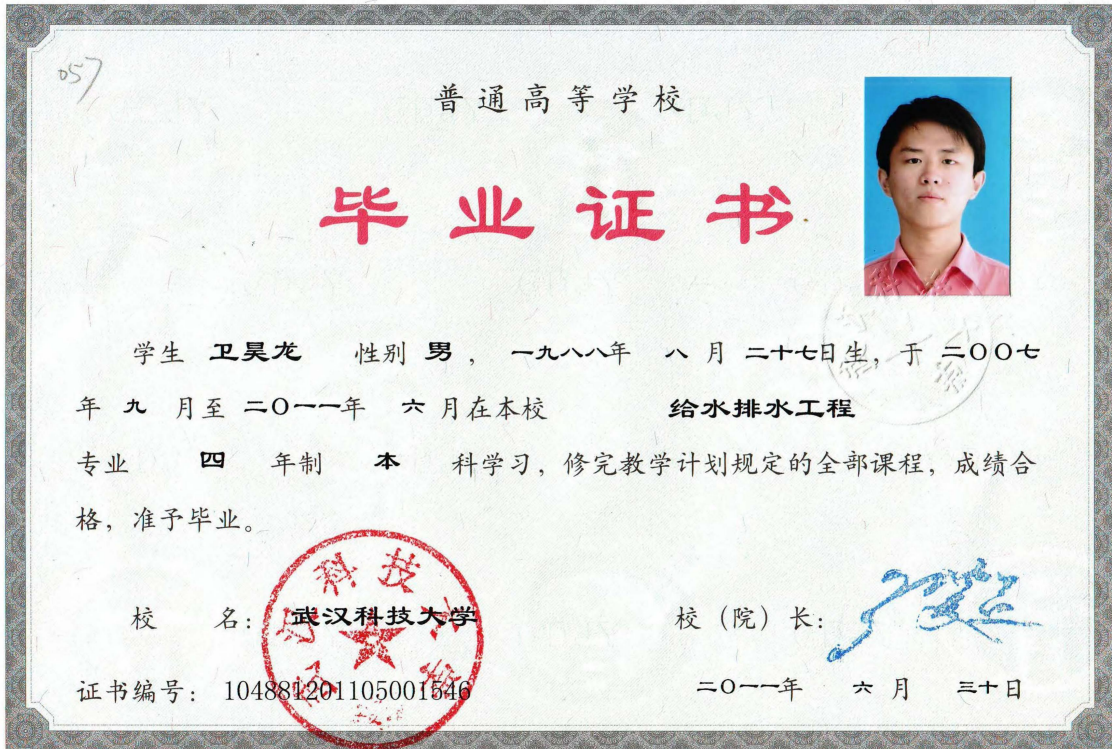 057
普通高等学校
毕业证书
学生 卫昊龙 性别 男，一九八八年 八 月 二十七日生，于 二〇〇七
年 九 月至 二〇一一年 六 月在本校 给水排水工程
专业 四 年制 本 科学习，修完教学计划规定的全部课程，成绩合
格，准予毕业。
校 名：武汉科技大学 校（院）长：
证书编号：104881201105001546 二〇一一年 六 月 三十日
武汉科技大学